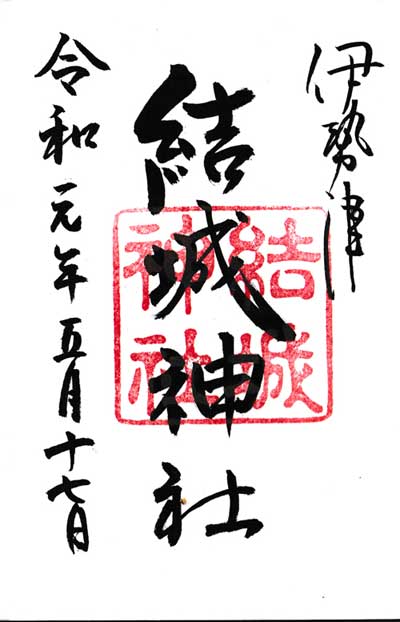 伊勢津
結城神社
結城
神社
令和元年五月十七日